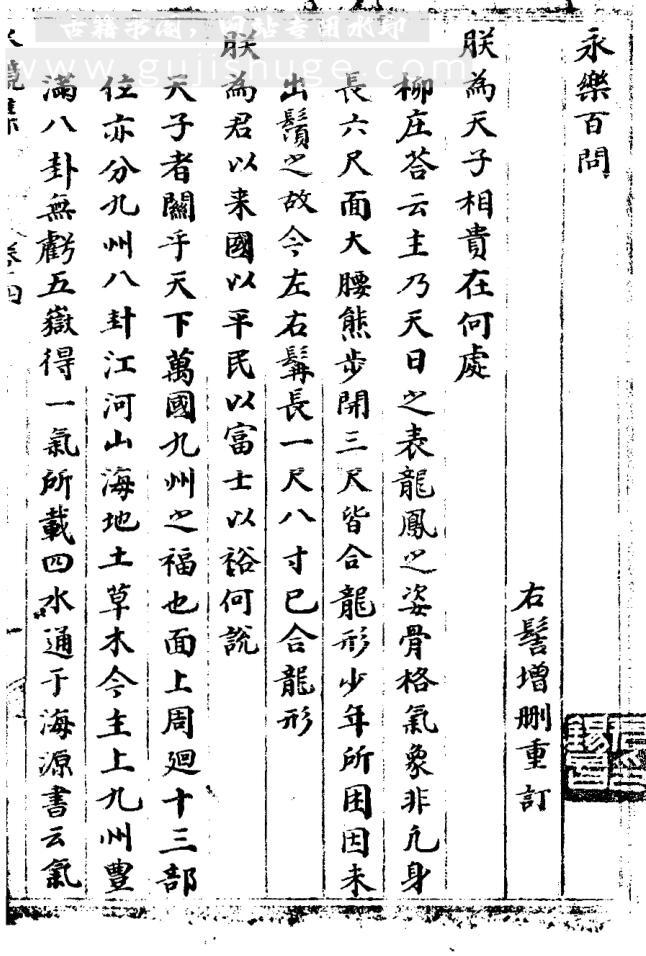 永樂百問
右髻增删重訂
朕為天子相貴在何處
柳庄荅云主乃天日之表龍鳳之姿骨格氣象非凢身
長六尺面大腰熊步開三尺皆合龍形少年所困因未
出鬚之故今左右髯長一尺八寸已合龍形
朕為君以来國以平民以富士以裕何說
天子者關乎天下萬國九州之福也面上周廻十三部
位亦分九州八卦江河山海地土草木今主上九州豐
滿八卦無虧五嶽得一氣所載四水通于海源書云氣
古籍书阁，网站专用水印
www.gujishuge.com